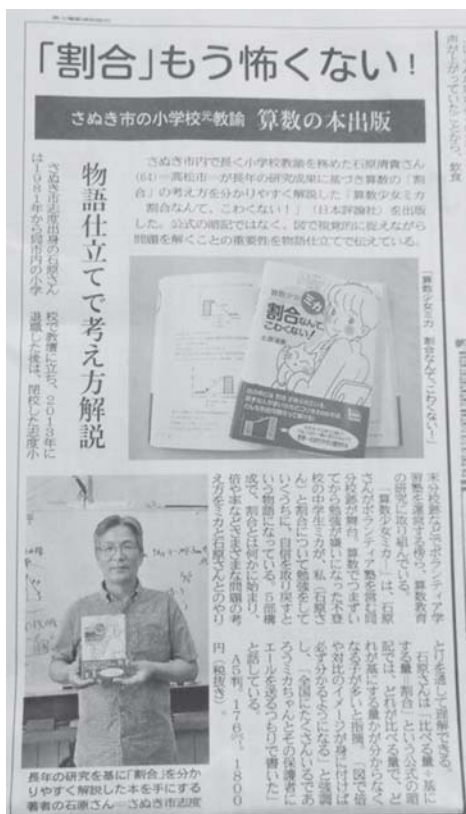 声が上がっていたことから、飲食
「割合」もう怖くない！
さぬき市の小学校元教諭 算数の本出版
さぬき市内で長く小学校教諭を務めた石原清貴さん
(64)＝高松市＝が長年の研究成果に基づき算数の「割
合」の考え方を分かりやすく解説した「算数少女ミカ
割合なんて、こわくない！」（日本評論社）を出版
した。公式の暗記ではなく、図で視覚的に捉えながら
問題を解くことの重要性を物語仕立てで伝えている。
物語仕立てで考え方解説
「算数少女ミカ 割合なんて、こわくない！」
算数少女ミカ
割合なんて、
こわくない！
石原清貴
さぬき市志度出身の石原さん
は1981年から同市内の小学
校で教壇に立ち、2013年に
退職した後は、閉校した志度小
末分校跡などでボランティア学
習塾を運営する傍ら、算数教育
の研究に取り組んでいる。
「算数少女ミカ―」は、石原
さんがボランティア塾を営む同
分校跡が舞台。算数でつまずい
てから勉強が嫌いになった不登
校の中学生ミカが、私（石原さ
ん）と割合について勉強をして
いくうちに、自信を取り戻すと
いう物語になっている。5部構
成で、割合とは何かに始まり、
倍や率などさまざまな問題の考
え方をミカと石原さんとのやり
とりを通して理解できる。
石原さんは「比べる量÷基に
する量＝割合」という公式の暗
記では、どれが比べる量で、ど
れが基にする量か分からなく
なる子が多いと指摘。「図で倍
や対比のイメージが身に付けば
必ず分かるようになる」と強調
し、「全国にたくさんいるであ
ろうミカちゃんとその保護者に
エールを送るつもりで書いた」
と話している。
A5判。176㌻。1800
円（税抜き）。
長年の研究を基に「割合」を分か
りやすく解説した本を手にする
著者の石原さん＝さぬき市志度